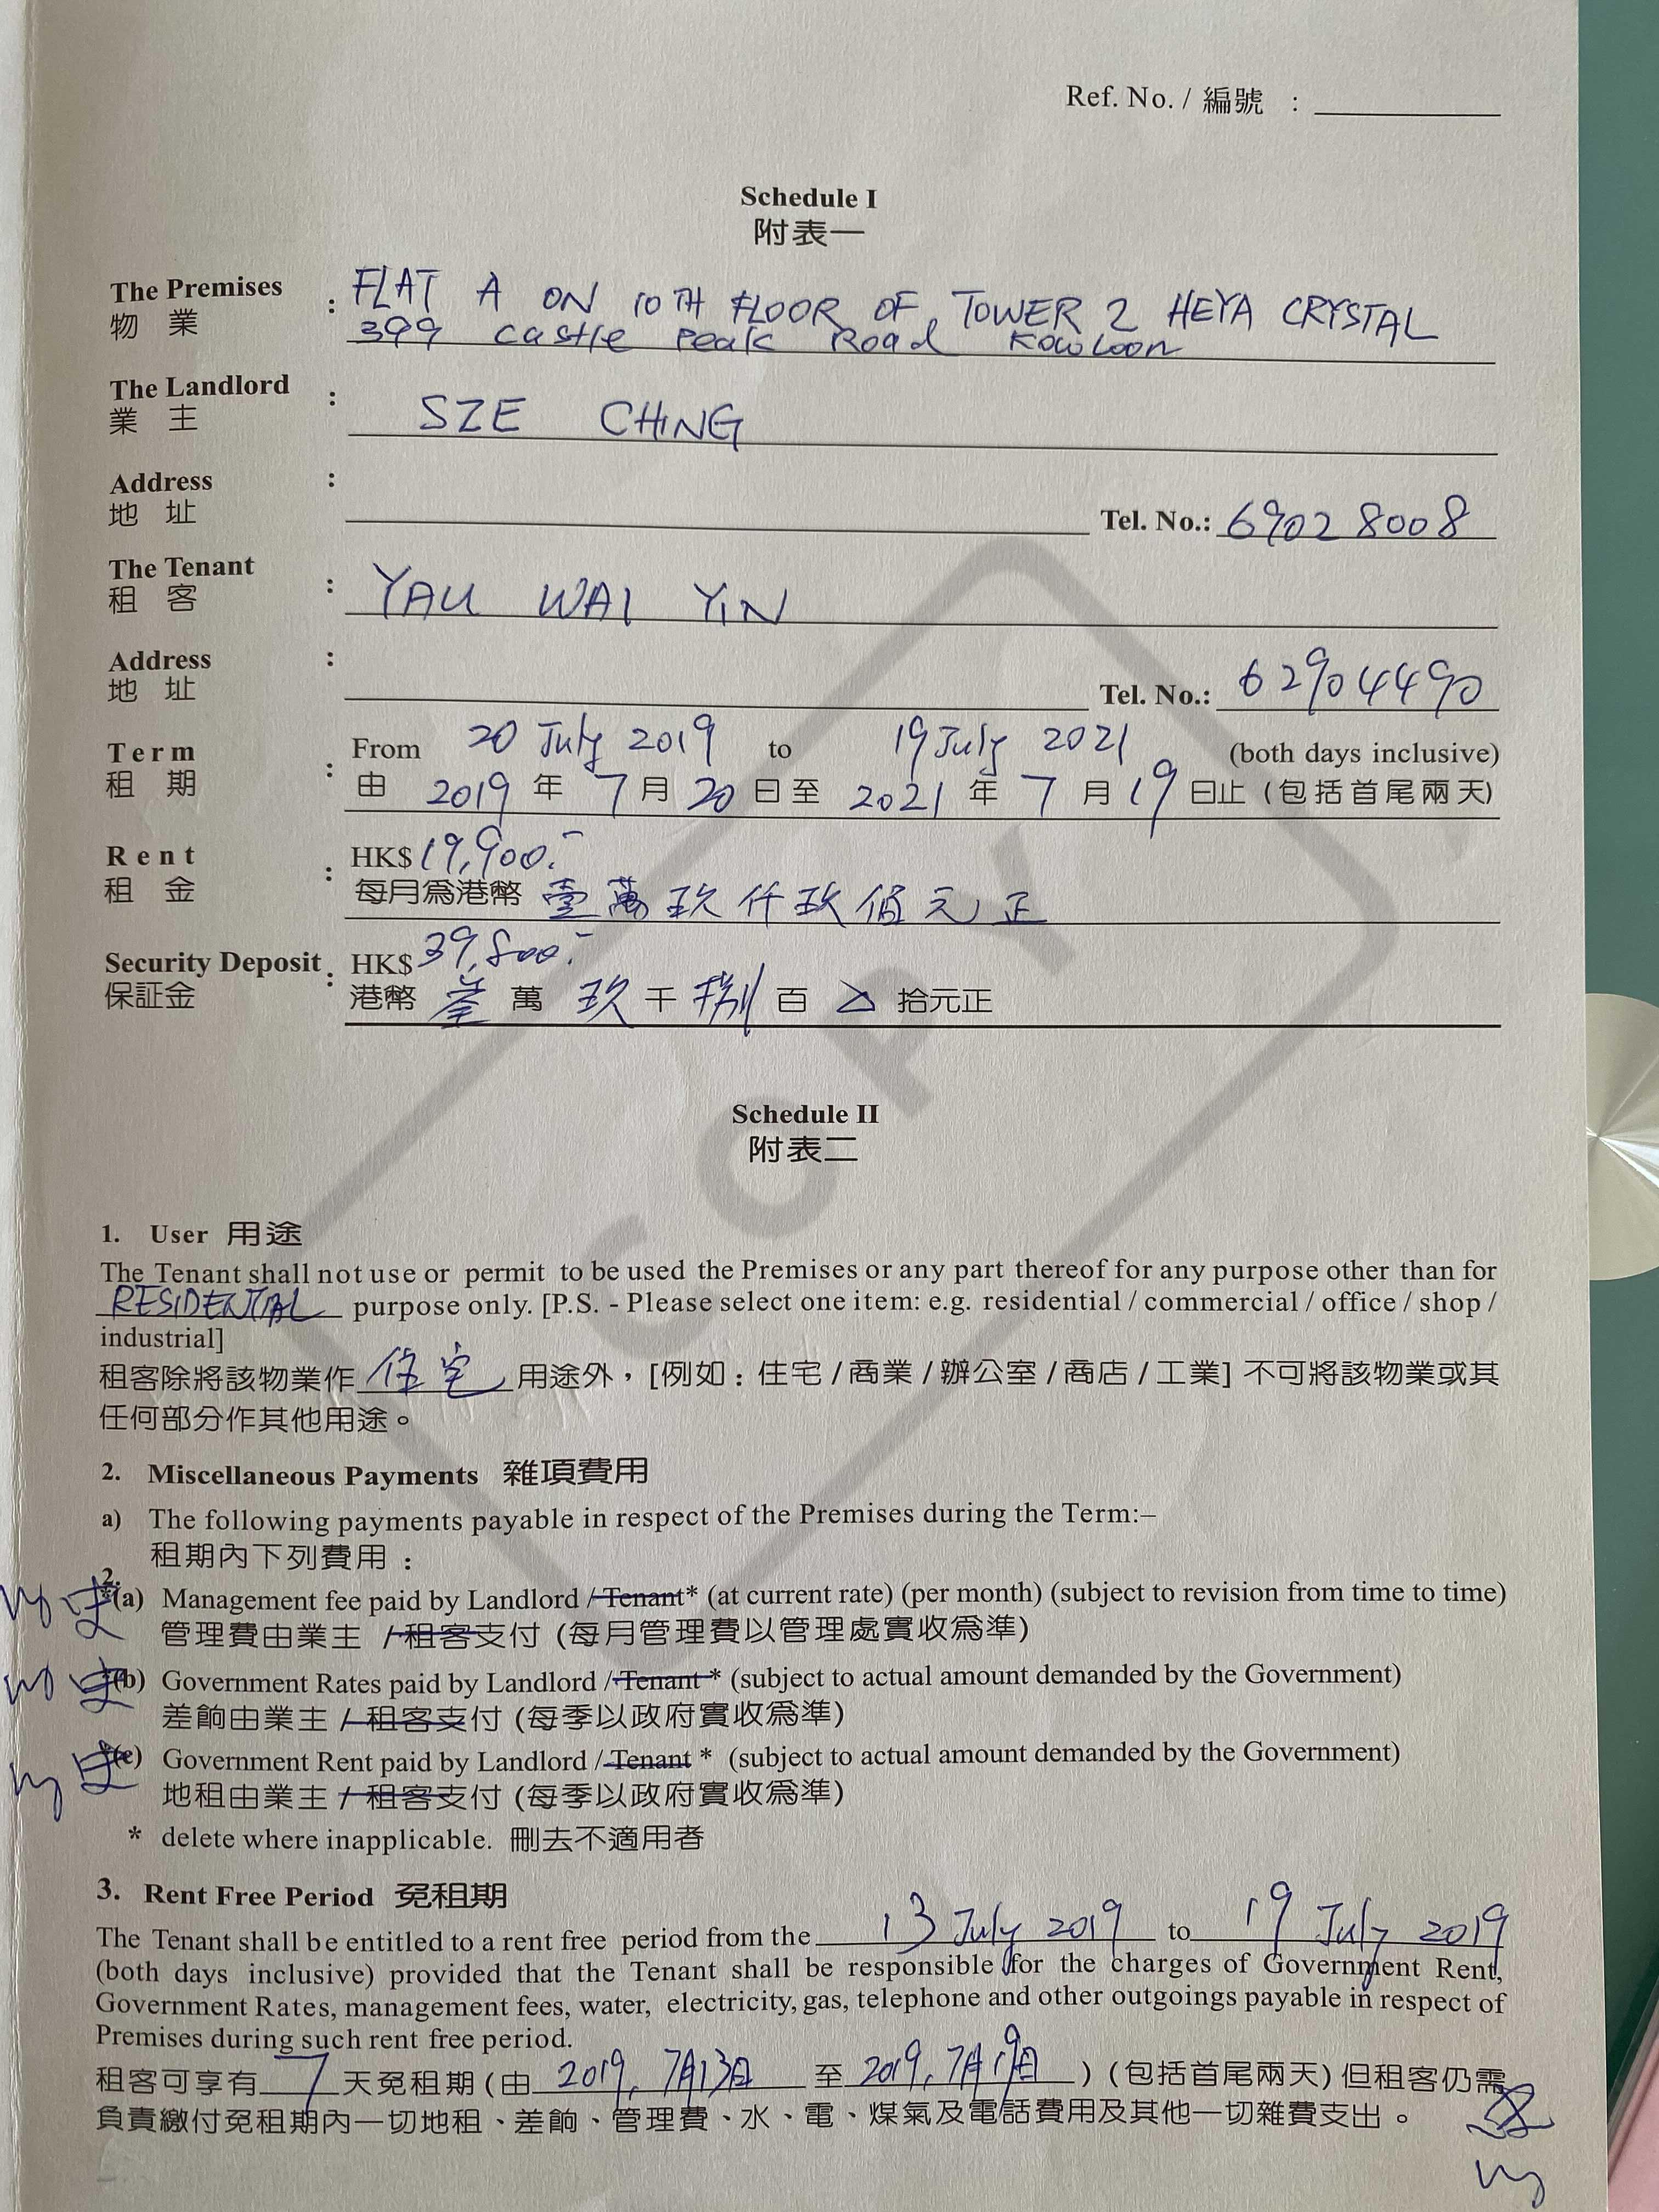 Ref. No. / 編號 :
Schedule I
附表一
The Premises : FLAT A ON 10TH FLOOR OF TOWER 2 HEYA CRYSTAL
物業 399 Castle Peak Road Kowloon
The Landlord : SZE CHING
業主
Address :
地址 Tel. No.: 69028008
The Tenant : YAU WAI YIN
租客
Address :
地址 Tel. No.: 62904490
Term : From 20 July 2019 to 19 July 2021 (both days inclusive)
租期 由 2019 年 7 月 20 日至 2021 年 7 月 19 日止 (包括首尾兩天)
Rent : HK$ 19,900.-
租金 每月為港幣 壹萬玖仟玖佰元正
Security Deposit : HK$ 39,800.-
保証金 港幣 萬 玖 千 捌 百 拾元正
Schedule II
附表二
1. User 用途
The Tenant shall not use or permit to be used the Premises or any part thereof for any purpose other than for
RESIDENTIAL purpose only. [P.S. - Please select one item: e.g. residential / commercial / office / shop /
industrial]
租客除將該物業作 住宅 用途外，[例如：住宅 / 商業 / 辦公室 / 商店 / 工業] 不可將該物業或其
任何部分作其他用途。
2. Miscellaneous Payments 雜項費用
a) The following payments payable in respect of the Premises during the Term:–
租期內下列費用：
2.
*(a) Management fee paid by Landlord / Tenant* (at current rate) (per month) (subject to revision from time to time)
管理費由業主 / 租客支付 (每月管理費以管理處實收為準)
*(b) Government Rates paid by Landlord / Tenant * (subject to actual amount demanded by the Government)
差餉由業主 / 租客支付 (每季以政府實收為準)
*(c) Government Rent paid by Landlord / Tenant * (subject to actual amount demanded by the Government)
地租由業主 / 租客支付 (每季以政府實收為準)
* delete where inapplicable. 刪去不適用者
3. Rent Free Period 免租期
The Tenant shall be entitled to a rent free period from the 13 July 2019 to 19 July 2019
(both days inclusive) provided that the Tenant shall be responsible for the charges of Government Rent,
Government Rates, management fees, water, electricity, gas, telephone and other outgoings payable in respect of
Premises during such rent free period.
租客可享有 7 天免租期 (由 2019, 7月13日 至 2019, 7月19日 ) (包括首尾兩天) 但租客仍需
負責繳付免租期內一切地租、差餉、管理費、水、電、煤氣及電話費用及其他一切雜費支出。
COPY